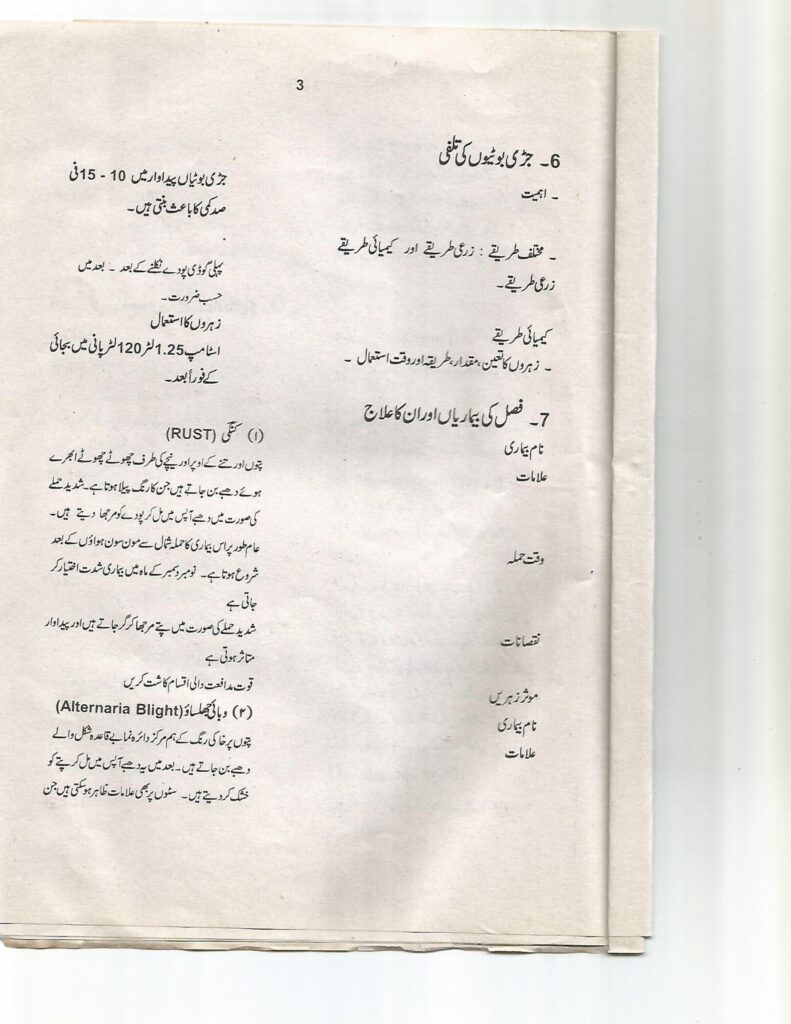 3
6۔ جڑی بوٹیوں کی تلفی
۔ اہمیت
جڑی بوٹیاں پیداوار میں 10 - 15 فی
صد کمی کا باعث بنتی ہیں۔
۔ مختلف طریقے : زرعی طریقے اور کیمیائی طریقے
زرعی طریقے۔
پہلی گوڈی پودے نکلنے کے بعد ۔ بعد میں
حسب ضرورت۔
زہروں کا استعمال
کیمیائی طریقے
۔ زہروں کا تعین، مقدار، طریقہ اور وقت استعمال ۔
اسٹامپ 1.25 لٹر 120 لٹر پانی میں بجائی
کے فوراً بعد۔
7۔ فصل کی بیماریاں اور ان کا علاج
نام بیماری
(۱) کنگی (RUST)
علامات
پتوں اور تنے کے اوپر اور نیچے کی طرف چھوٹے چھوٹے ابھرے
ہوئے دھبے بن جاتے ہیں جن کا رنگ پیلا ہوتا ہے۔ شدید حملے
کی صورت میں دھبے آپس میں مل کر پودے کو مرجھا دیتے ہیں۔
وقت حملہ
عام طور پر اس بیماری کا حملہ شمال سے مون سون ہواؤں کے بعد
شروع ہوتا ہے۔ نومبر دسمبر کے ماہ میں بیماری شدت اختیار کر
جاتی ہے
نقصانات
شدید حملے کی صورت میں پتے مرجھا کر گر جاتے ہیں اور پیداوار
متاثر ہوتی ہے
موثر زہریں
قوت مدافعت والی اقسام کاشت کریں
نام بیماری
(۲) وبائی جھلساؤ (Alternaria Blight)
علامات
پتوں پر خاکی رنگ کے ہم مرکز دائرہ نما بے قاعدہ شکل والے
دھبے بن جاتے ہیں۔ بعد میں یہ دھبے آپس میں مل کر پتے کو
خشک کر دیتے ہیں۔ سٹوں پر بھی علامات ظاہر ہو سکتی ہیں جن